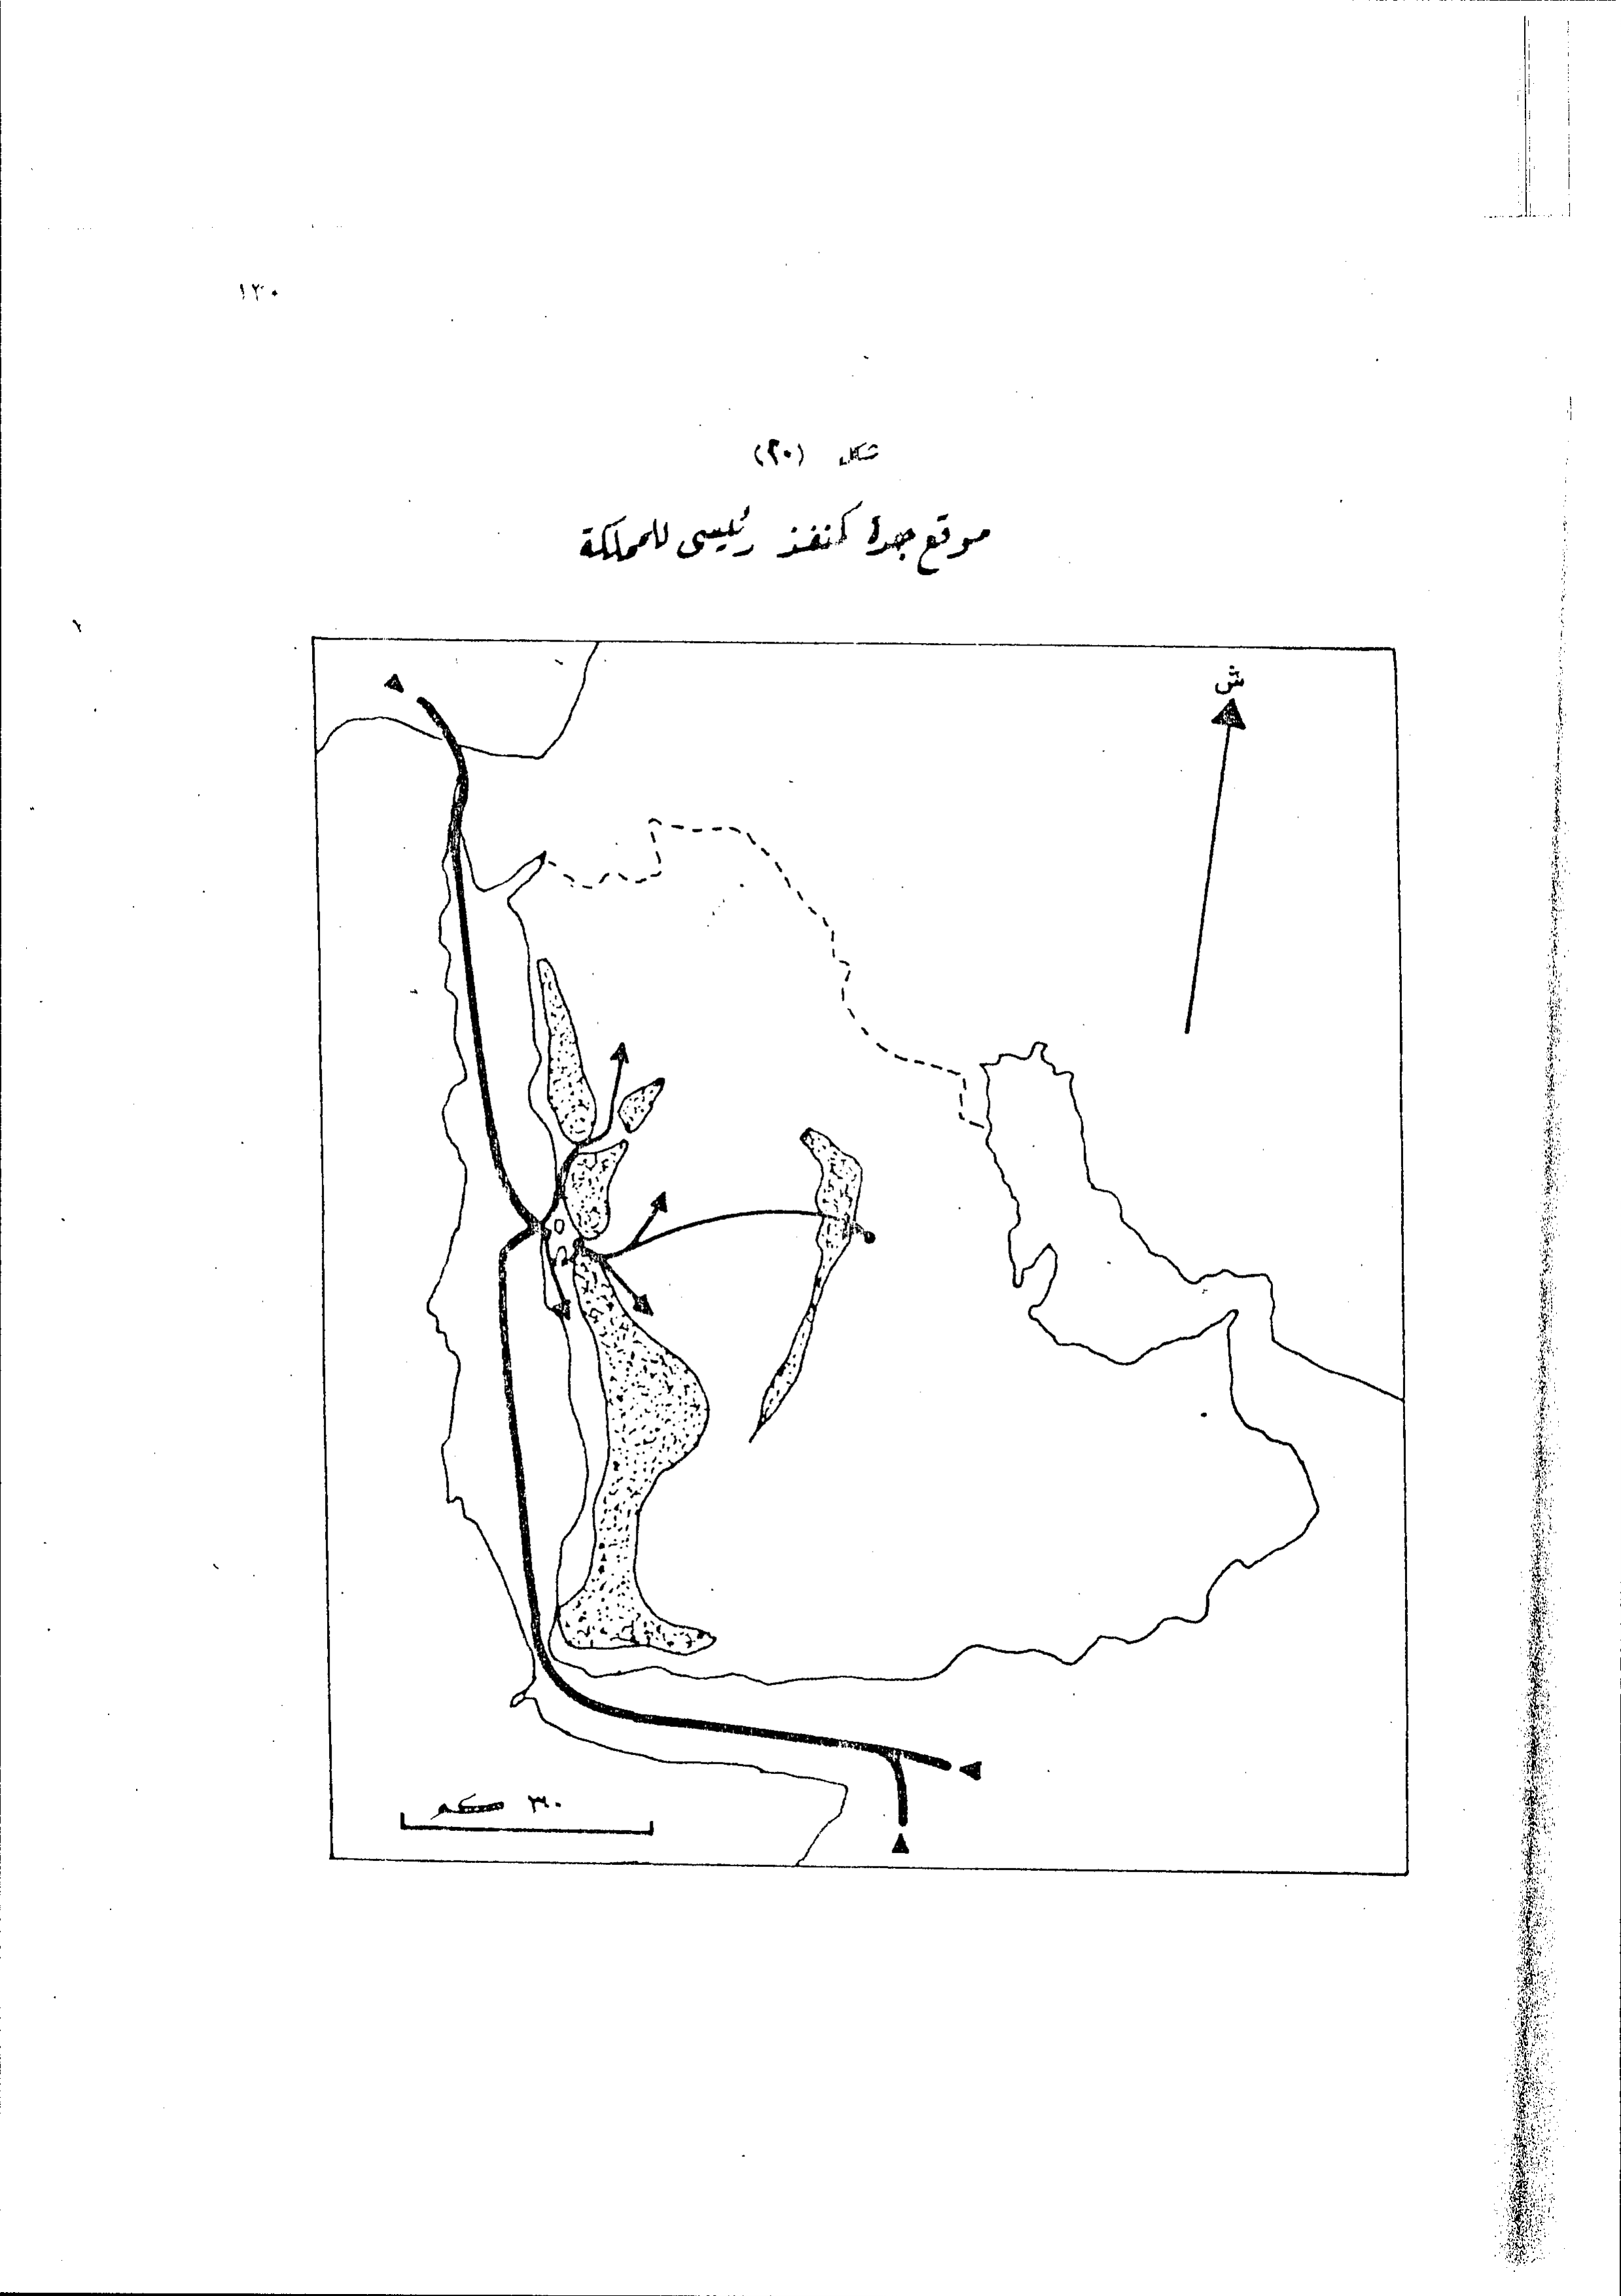 ١٣٠
شكل (٢٠)
موقع جدة كمنفذ رئيسى للمملكة
ش
كم